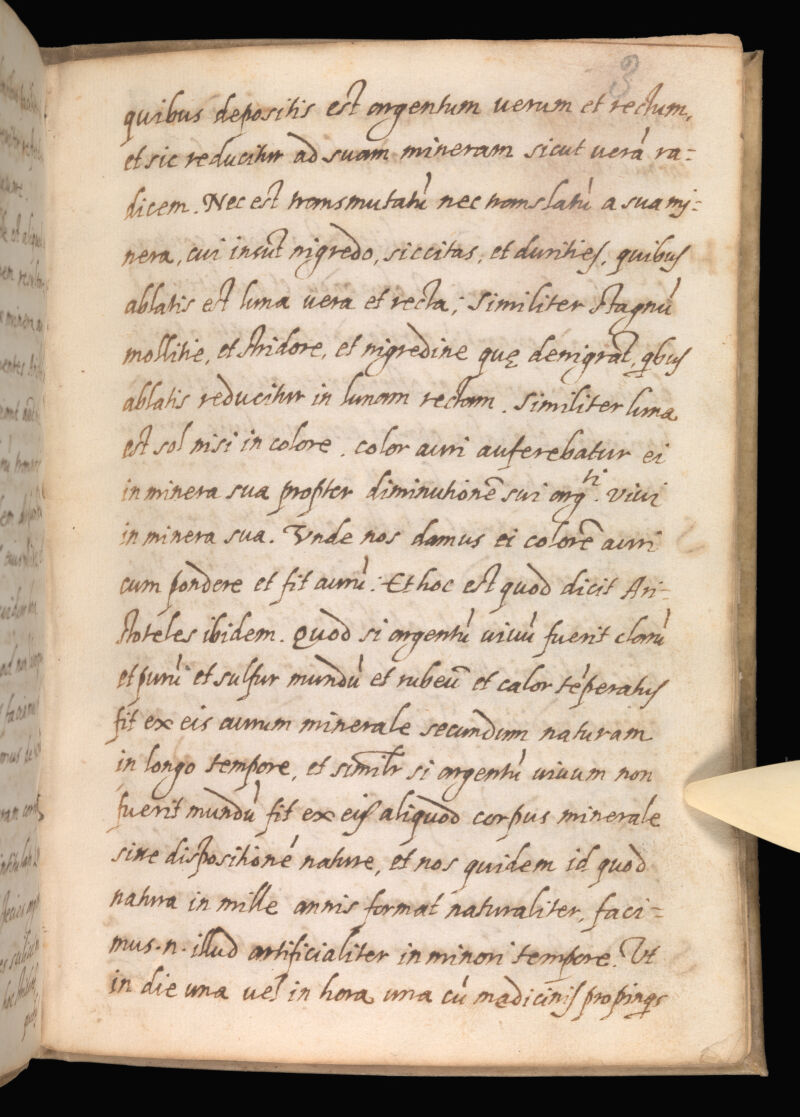 3
quibus depositis est argentum uerum et rectum,
et sic reducitur ad suam mineram sicut uerá ra-
dicem. Nec est transmutatú nec translatú a sua mj-
nera, cui insút nigredo, siccitas, et durities, quibus
ablatis est luna uera et recta; similiter stagnú
mollitie, et stridore, et nigredine quę denigrat, qbus
ablatis reducitur in lunam rectam. Similiter luna
est sol nisi in colore. color auri auferebatur ei
in minera sua propter diminutionē sui argti. viui
in minera sua. Vnde nos damus ei colorē auri
cum pondere et fit aurú. Et hoc est quod dicit Ari-
stoteles ibidem. Quod si argentú uiuú fuerit clarú
et purú et sulfur mundú et rubeū et calor téperatus
fit ex eis aurum minerale secundum naturam
in longo tempore, et similr si argentú uiuum non
fuerit mundú fit ex eis aliquod corpus minerale
siue dispositioné nature, et nos quidem id quod
natura in mille annis format naturaliter, faci-
mus .n. illud artificialiter in minori tempore. Vt
in die una uel in hora una cú medicinis propinqs